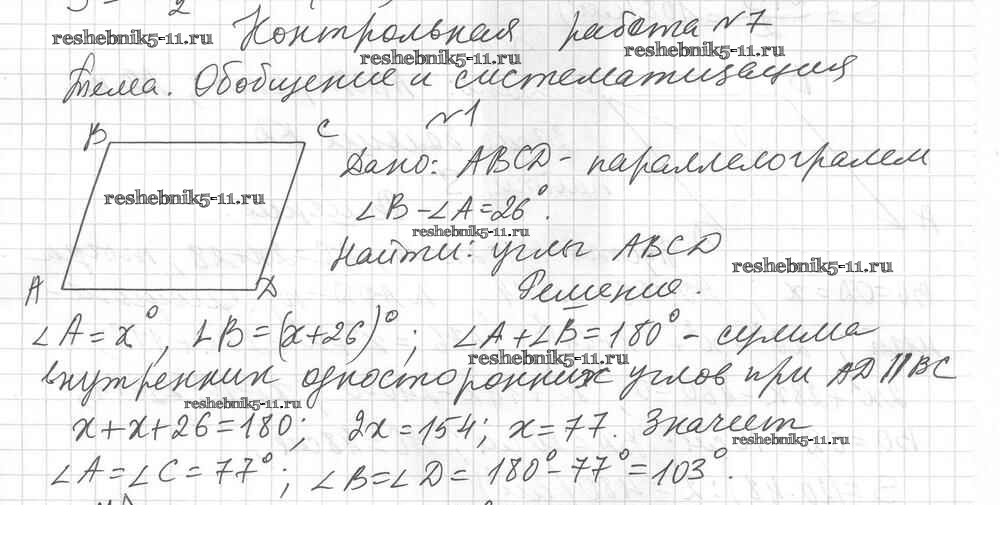 reshebnik5-11.ru Контрольная работа №7
reshebnik5-11.ru reshebnik5-11.ru
Тема. Обобщение и систематизация
№1
B C
Дано: ABCD - параллелограмм
reshebnik5-11.ru
∠B - ∠A = 26°.
reshebnik5-11.ru
Найти: углы ABCD
reshebnik5-11.ru
A D
Решение.
∠A = x°, ∠B = (x+26)°; ∠A + ∠B = 180° - сумма
reshebnik5-11.ru
внутренних односторонних углов при AD || BC
reshebnik5-11.ru
x + x + 26 = 180; 2x = 154; x = 77. Значит
reshebnik5-11.ru
∠A = ∠C = 77°; ∠B = ∠D = 180° - 77° = 103°.